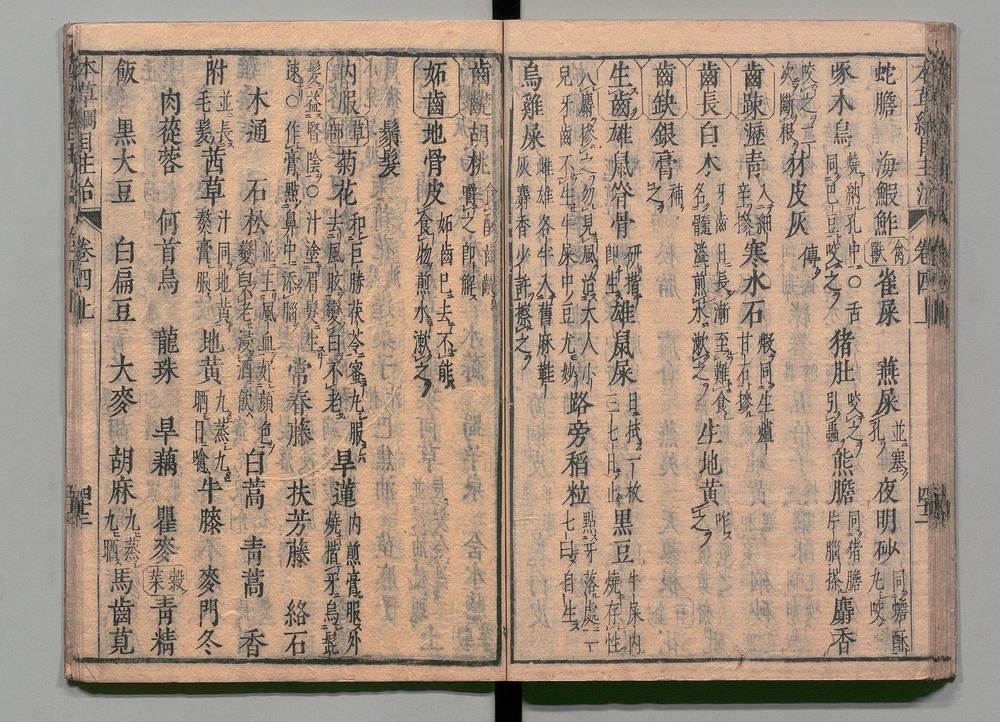 蛇膽 海鰕鮓 禽獸 雀屎 燕屎並塞孔 夜明砂同蟾酥丸咬
啄木烏燒納孔中○舌同巴豆咬之 猪肚咬之引蟲 熊膽同猪膽片腦搽 麝香
咬之二次斷根 豺皮灰傅
齒疎瀝青入細辛摻 寒水石煆同生爐甘石摻
齒長白朮牙齒日長漸至難食名髓溢煎水漱之 生地黄咋之
齒缺銀膏補之
生齒雄鼠脊骨研揩即生 雄鼠屎日拭一枚三七日止 黒豆牛屎内燒存性
入麝摻之勿見風治大人小兒牙齒不生牛屎中豆尤妙 路旁稻粒點牙落處一七日自生
烏雞屎雌雄各半入舊麻鞋灰麝香少許擦之
齒齼胡桃食酸齒齼嚼之即解
妬齒地骨皮妬齒已去不能食物煎水漱之
鬚髮
内服草部 菊花和巨勝茯苓蜜丸服去風眩變白不老 早蓮内煎膏服外燒揩牙烏髭
髮益腎陰○汁塗眉髮生速○作膏點鼻中添腦 常春藤 扶芳藤 絡石
木通 石松並主風血好顔色變白不老浸酒飲 白蒿 青蒿 香
附並長毛髮 茜草汁同地黄熬膏服 地黄九蒸九晒日噙 牛膝 麥門冬
肉蓯蓉 何首烏 龍珠 旱藕 瞿麥 穀菜 青精
飯 黒大豆 白扁豆 大麥 胡麻九蒸九晒 馬齒莧
本草綱目主治 卷四上